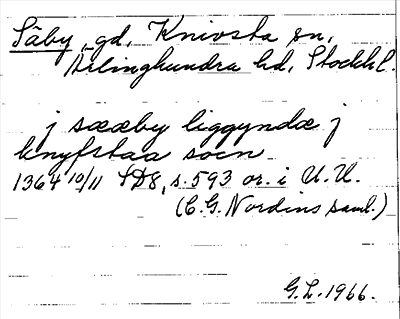 Säby, gd, Knivsta sn,
Ärlinghundra hd, Stockh l.
j sææby liggyndæ j
knyfstaa socn
1364 10/11 SD8, s. 593 or. i U.U.
(C.G. Nordins saml.)
G.L. 1966.